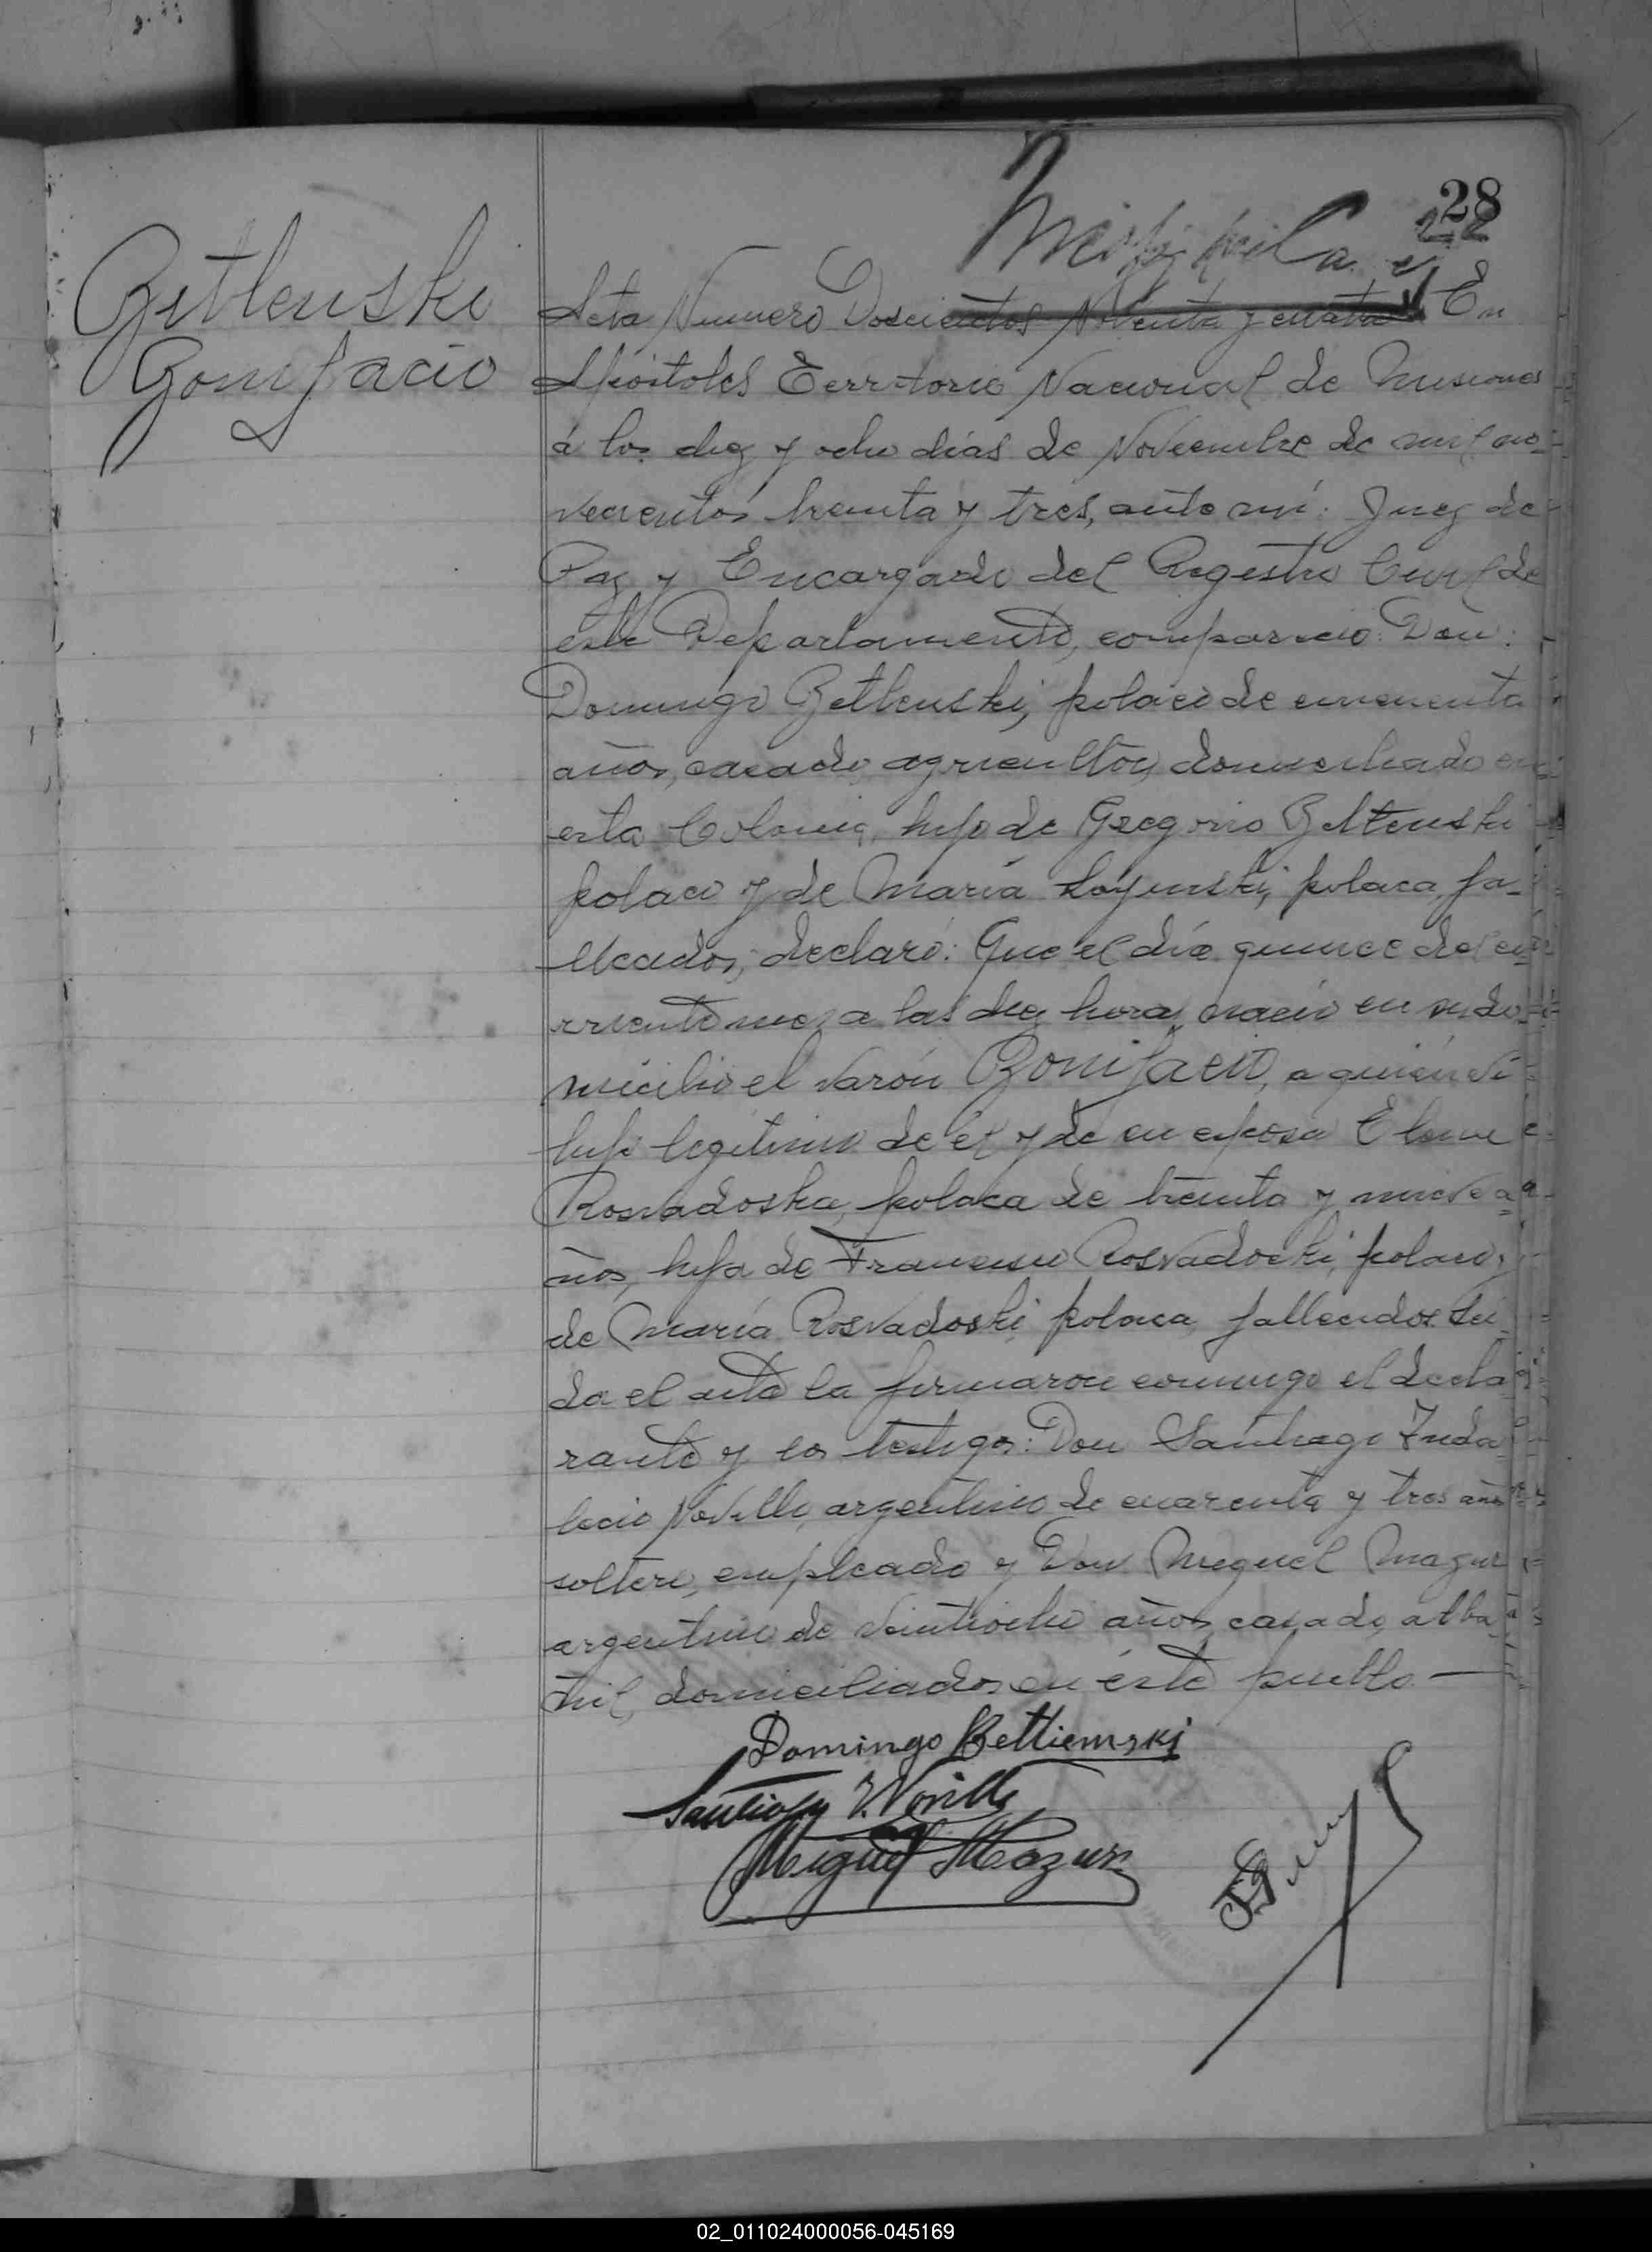 28
22
Betlenski
Bonifacio
Acta Numero Doscientos Noventa y cuatro En
Apóstoles Territorio Nacional de Misiones
á los diez y ocho días de Noviembre de mil no-
vecientos treinta y tres, ante mí: Juez de
Paz y Encargado del Registro Civil de
este Departamento, compareció: Don:
Domingo Betlenski, polaco de cincuenta
años, casado, agricultor, domiciliado en
esta Colonia, hijo de Gregorio Beltenski
polaco y de María polaca, fa-
llecados, declaró: Que el día quince del co-
rriente mes a las diez horas nació en su do-
micilio el varón Bonifacio, a quién ví
hijo legítimo de él y de su esposa
Rosvadoska, polaca de treinta y nueve a-
ños, hija de Francisco Rosvadoski, polaco y
de María Rosvadoski polaca, fallecidos. Leí-
da el acta la firmaron conmigo el decla-
rante y los testigos: Don Santiago Inda-
lecio Novillo, argentino de cuarenta y tres años
soltero, empleado y Don Miguel Mazur
argentino de veintiocho años, casado, alba-
ñil, domiciliados en éste pueblo. —
Domingo Betliemski
Santiago I. Novillo
Miguel Mazur
02_011024000056-045169